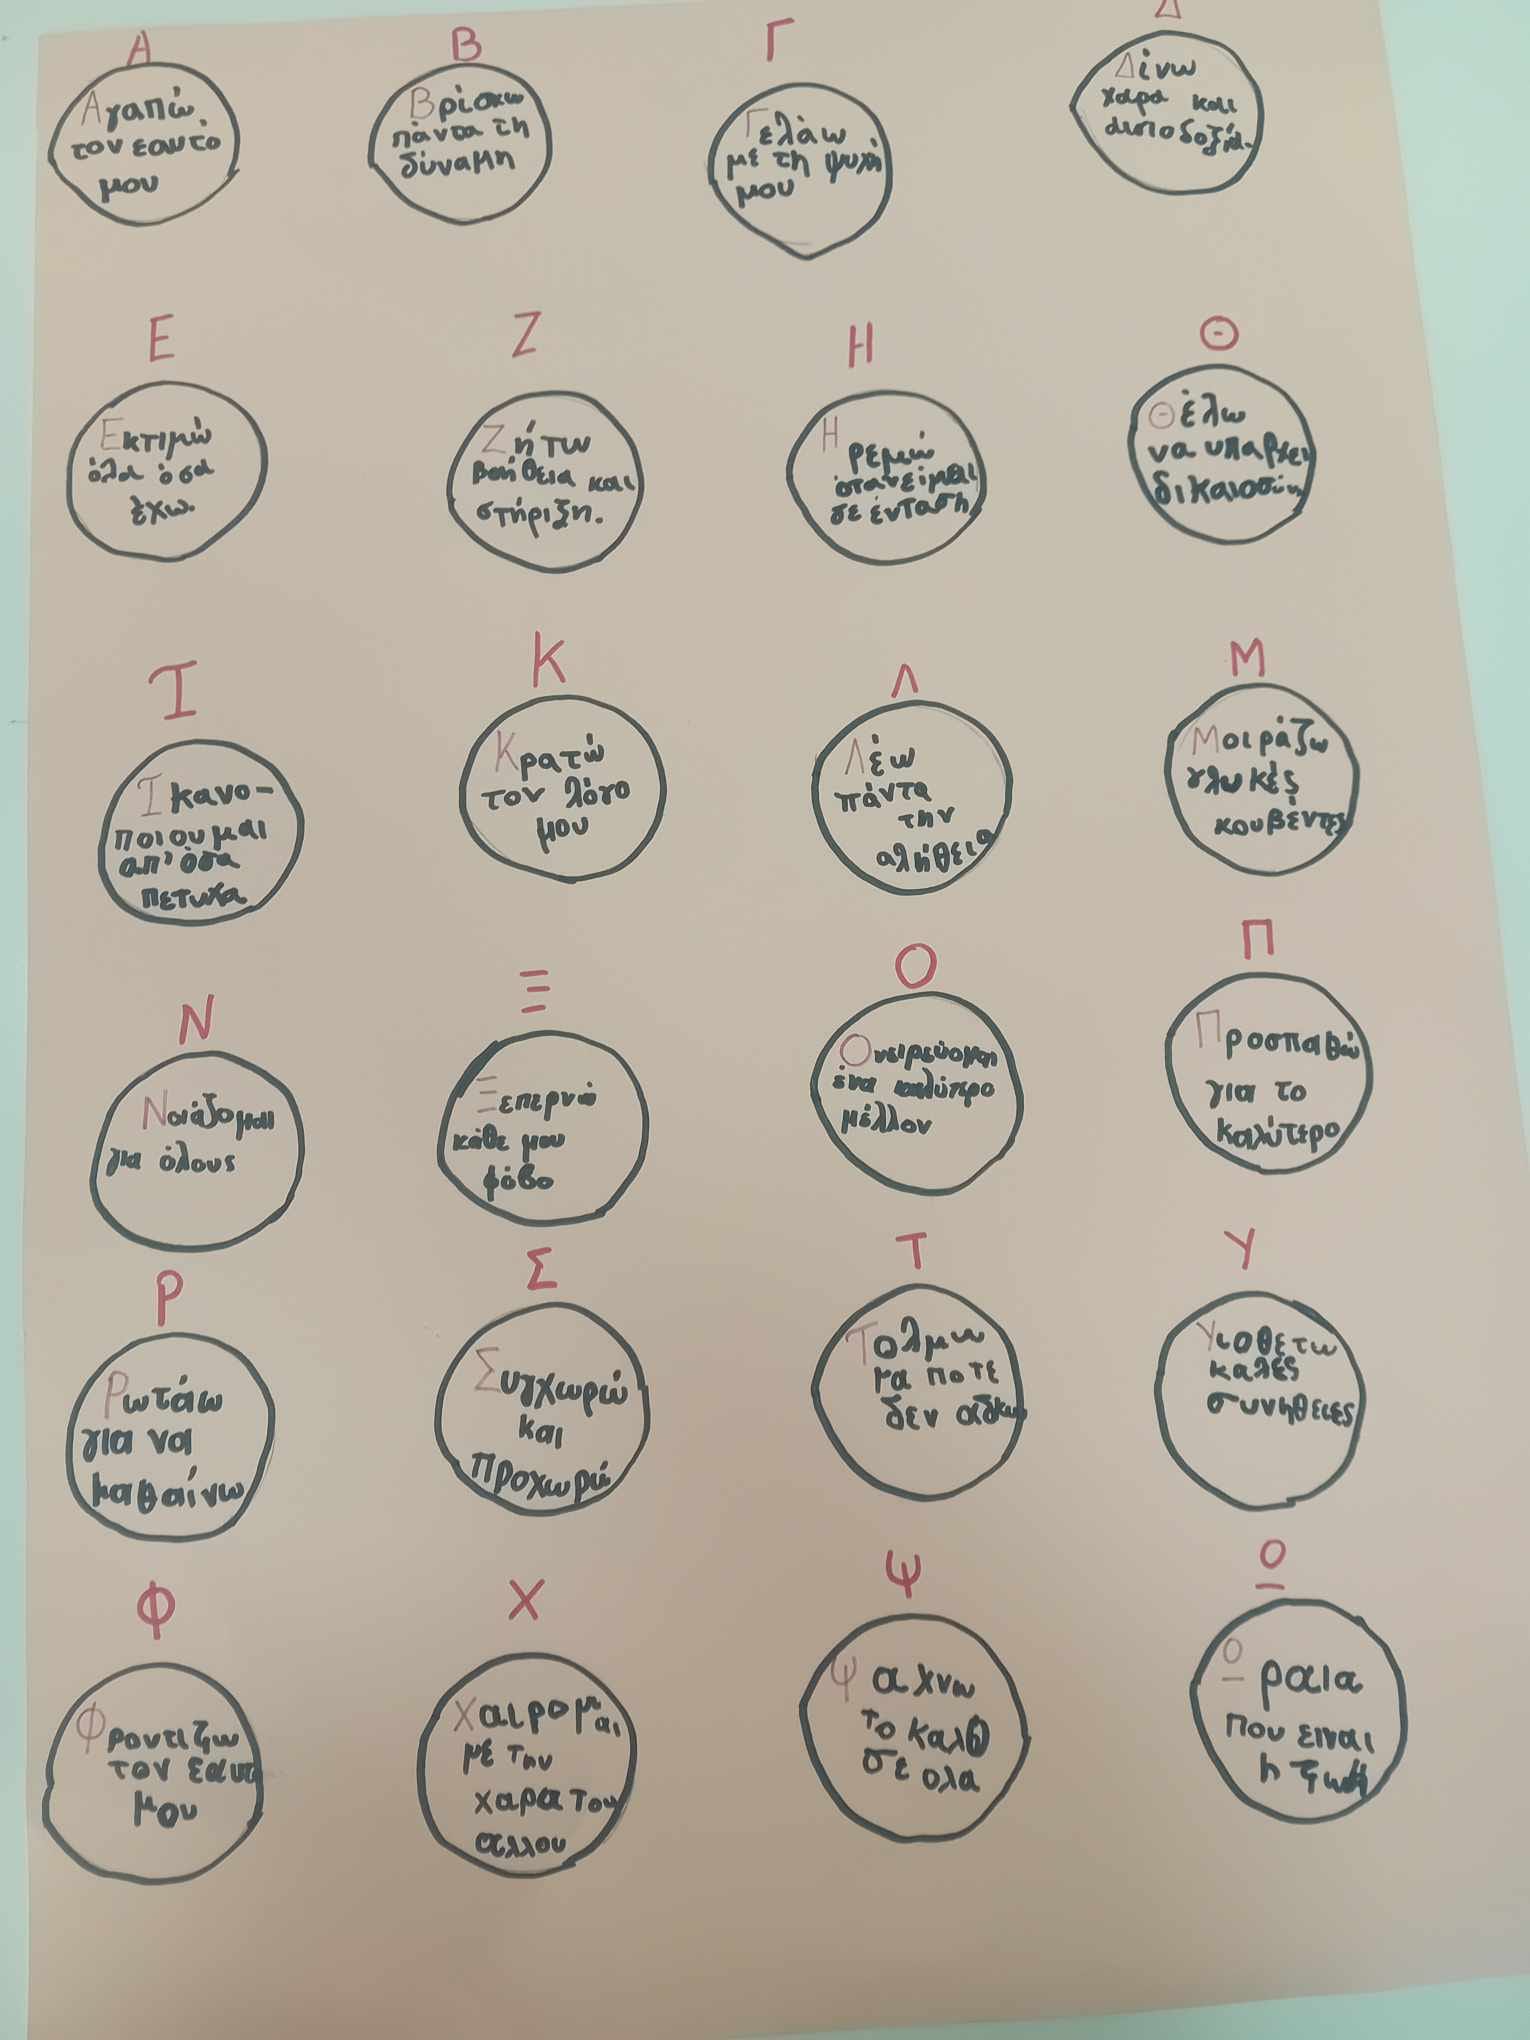 Α
Αγαπώ
τον εαυτό
μου
Β
Βρίσκω
πάντα τη
δύναμη
Γ
Γελάω
με τη ψυχή
μου
Δ
Δίνω
χαρά και
αισιοδοξία.
Ε
Εκτιμώ
όλα όσα
έχω.
Ζ
Ζήτω
βοήθεια και
στήριξη.
Η
Ηρεμώ
όταν είμαι
σε ένταση
Θ
Θέλω
να υπάρχει
δικαιοσύνη
Ι
Ικανο-
ποιουμαι
απ' όσα
πετυχα
Κ
Κρατώ
τον λόγο
μου
Λ
Λέω
πάντα
την
αλήθεια
Μ
Μοιράζω
γλυκές
κουβέντες
Ν
Νοιάζομαι
για όλους
Ξ
Ξεπερνώ
κάθε μου
φόβο
Ο
Ονειρεύομαι
ένα καλύτερο
μέλλον
Π
Προσπαθώ
για το
καλύτερο
Ρ
Ρωτάω
για να
μαθαίνω
Σ
Συγχωρώ
και
προχωρώ
Τ
Τολμω
να ποτε
δεν αδκω
Υ
Υιοθετω
καλές
συνηθειες
Φ
Φροντιζω
τον εαυτο
μου
Χ
Χαιρομαι
με την
χαρα του
αλλου
Ψ
Ψαχνω
το καλο
σε ολα
Ω
Ωραια
που ειναι
η ζωή